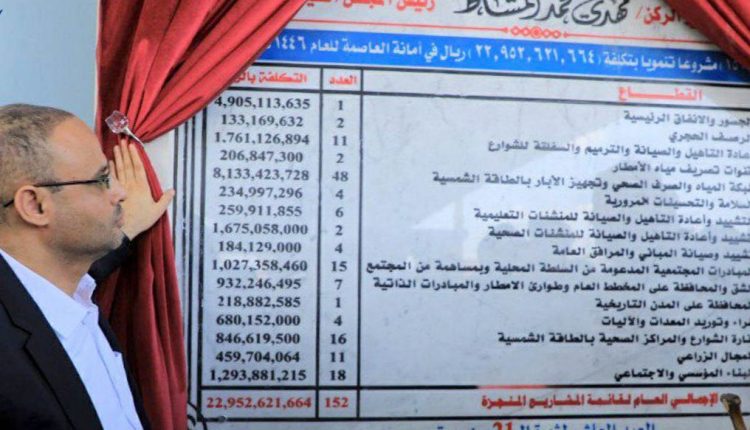 الركن/ مهدي محمد المشاط رئيس المجلس
مشروعا تنمويا بتكلفة (٢٢,٩٥٢,٦٢١,٦٦٤) ريال في أمانة العاصمة للعام ١٤٤٦
القطاع العدد التكلفة
الجسور والانفاق الرئيسية 1 4,905,113,635
الرصف الحجري 2 133,169,632
إعادة التاهيل والصيانة والترميم والسفلتة للشوارع 11 1,761,126,894
قنوات تصريف مياه الأمطار 2 206,847,300
شبكة المياه والصرف الصحي وتجهيز الآبار بالطاقة الشمسية 48 8,133,423,728
السلامة والتحسينات المرورية 4 234,997,496
تشييد وأعادة التاهيل والصيانة للمنشئات التعليمية 6 259,911,855
تشييد وأعادة التاهيل والصيانة للمنشئات الصحية 2 1,675,058,000
تشييد وصيانة المباني والمرافق العامة 4 184,129,000
المبادرات المجتمعية المدعومة من السلطة المحلية وبمساهمة من المجتمع 15 1,027,358,460
شق والمحافظة على المخطط العام وطوارئ الامطار والمبادرات الذاتية 7 932,246,495
المحافظة على المدن التاريخية 1 218,882,585
وتوريد المعدات والآليات 4 680,152,000
إنارة الشوارع والمراكز الصحية بالطاقة الشمسية 16 846,619,500
المجال الزراعي 11 459,704,064
البناء المؤسسي والاجتماعي 18 1,293,881,215
الإجمالي العام لقائمة المشاريع المنجزة 152 22,952,621,664
21